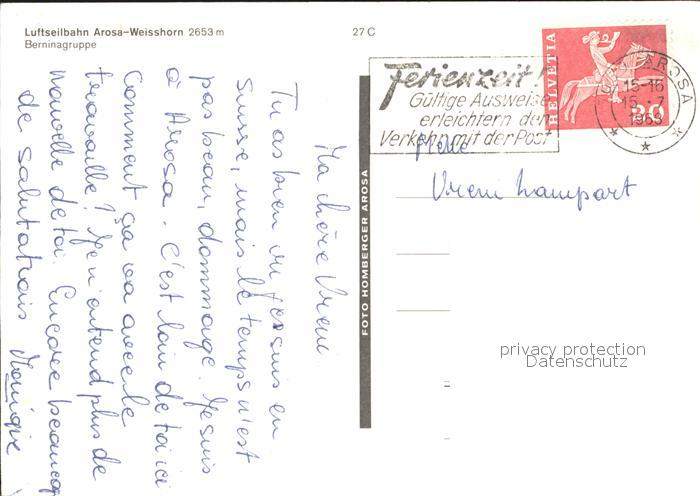 Luftseilbahn Arosa-Weisshorn 2653 m
Berninagruppe
27 C
Ferienzeit!
Gültige Ausweise
erleichtern den
Verkehr mit der Post
HELVETIA
20
AROSA
15-16
15.7
1963
FOTO HOMBERGER AROSA
Vreni Lampart
privacy protection
Datenschutz
Ma chère Vreni
Tu as bien vu je suis en
suisse, mais le temps n'est
pas beau, dommage. Je suis
à Arosa. C'est loin de toi ici
Comment ça va avec le
travaille? Je n'entend plus de
nouvelle de toi. Encore beaucoup
de salutations Monique